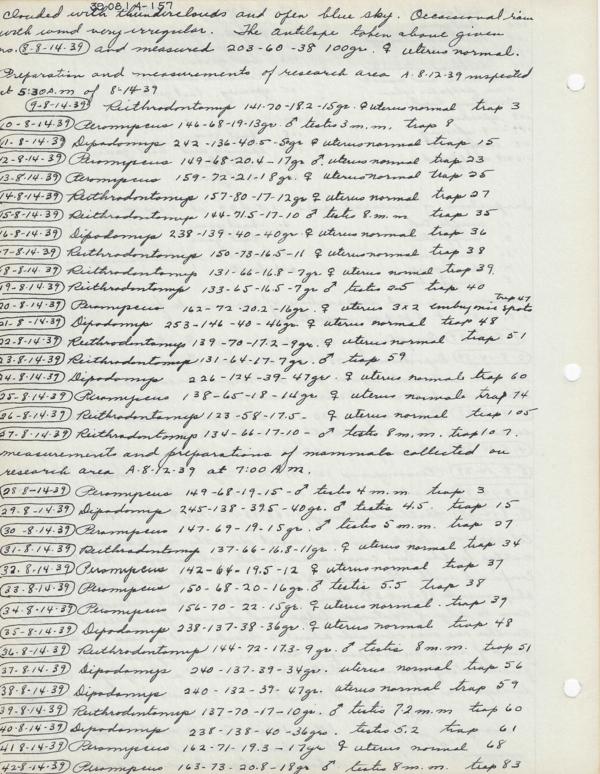 39081A-157
clouded with thunderclouds and open blue sky. Occassional rain
with wind very irregular. The Antilope taken above given
no. 8-8-14-39 and measured 203-60-38 100gr. ♀ uterus normal.
Preparation and measurements of research area A-8-12-39 inspected
at 5:30 A.m of 8-14-39
9-8-14-39 Reithrodontomys 141-70-18.2-15gr. ♀ uterus normal trap 3
10-8-14-39 Peromyscus 146-68-19-13gr ♂ testis 3 m.m. trap 8
11-8-14-39 Dipodomys 242-136-40.5-50gr ♀ uterus normal trap 15
12-8-14-39 Peromyscus 149-68-20.4-17gr ♂. uterus normal trap 23
13-8-14-39 Peromyscus 159-72-21-18gr. ♀ uterus normal trap 25
14-8-14-39 Reithrodontomys 157-80-17-12gr ♀ uterus normal trap 27
15-8-14-39 Reithrodontomys 144-71.5-17-10 ♂ testis 8 m.m trap 35
16-8-14-39 Dipodomys 238-139-40-40gr ♀ uterus normal trap 36
17-8-14-39 Reithrodontomys 150-73-16.5-11 ♀ uterus normal trap 38
18-8-14-39 Reithrodontomys 131-66-16.8-7gr ♀ uterus normal trap 39
19-8-14-39 Reithrodontomys 133-65-16.5-7gr ♂ testis 2.5 trap 40
20-8-14-39 Peromyscus 162-72-20.2-16gr. ♀ uterus 3x2 embryonic spots trap 47
21-8-14-39 Dipodomys 253-146-40-46gr ♀ uterus normal trap 48
22-8-14-39 Reithrodontomys 139-70-17.2-9gr. ♀ uterus normal trap 51
23-8-14-39 Reithrodontomys 131-64-17-7gr. ♂ trap 59
24-8-14-39 Dipodomys 226-124-39-47gr. ♀ uterus normal trap 60
25-8-14-39 Peromyscus 138-65-18-14gr ♀ uterus normal trap 74
26-8-14-39 Reithrodontomys 123-58-17.5- ♀ uterus normal trap 105
27-8-14-39 Reithrodontomys 134-66-17-10- ♂ testis 8 m.m. trap 107.
measurements and preparations of mammals collected on
research area A-8-12-39 at 7:00 A.M.
28-8-14-39 Peromyscus 149-68-19-15-♂ testis 4 m.m trap 3
29-8-14-39 Dipodomys 245-138-39.5-40gr. ♂ testis 4.5. trap 15
30-8-14-39 Peromyscus 147-69-19-15gr ♂ testis 5 m.m. trap 27
31-8-14-39 Reithrodontomys 137-66-16.8-11gr. ♀ uterus normal trap 34
32-8-14-39 Peromyscus 142-64-19.5-12 ♀ uterus normal trap 37
33-8-14-39 Peromyscus 150-68-20-16gr. ♂ testis 5.5 trap 38
34-8-14-39 Peromyscus 156-70-22-15gr. ♀ uterus normal. trap 39
35-8-14-39 Dipodomys 238-137-38-36gr. ♀ uterus normal trap 48
36-8-14-39 Reithrodontomys 144-72-17.3-9gr. ♂ testis 8 m.m. trap 51
37-8-14-39 Dipodomys 240-137-39-34gr. uterus normal trap 56
38-8-14-39 Dipodomys 240-132-39-47gr. uterus normal trap 59
39-8-14-39 Reithrodontomys 137-70-17-10gr. ♂ testis 7.2 m.m trap 60
40-8-14-39 Dipodomys 238-138-40-36gr. testis 5.2 trap 61
41 8-14-39 Peromyscus 162-71-19.3-17gr ♀ uterus normal 68
42-8-14-39 Peromyscus 163-73-20.8-18gr ♂ testis 8 m.m. trap 83